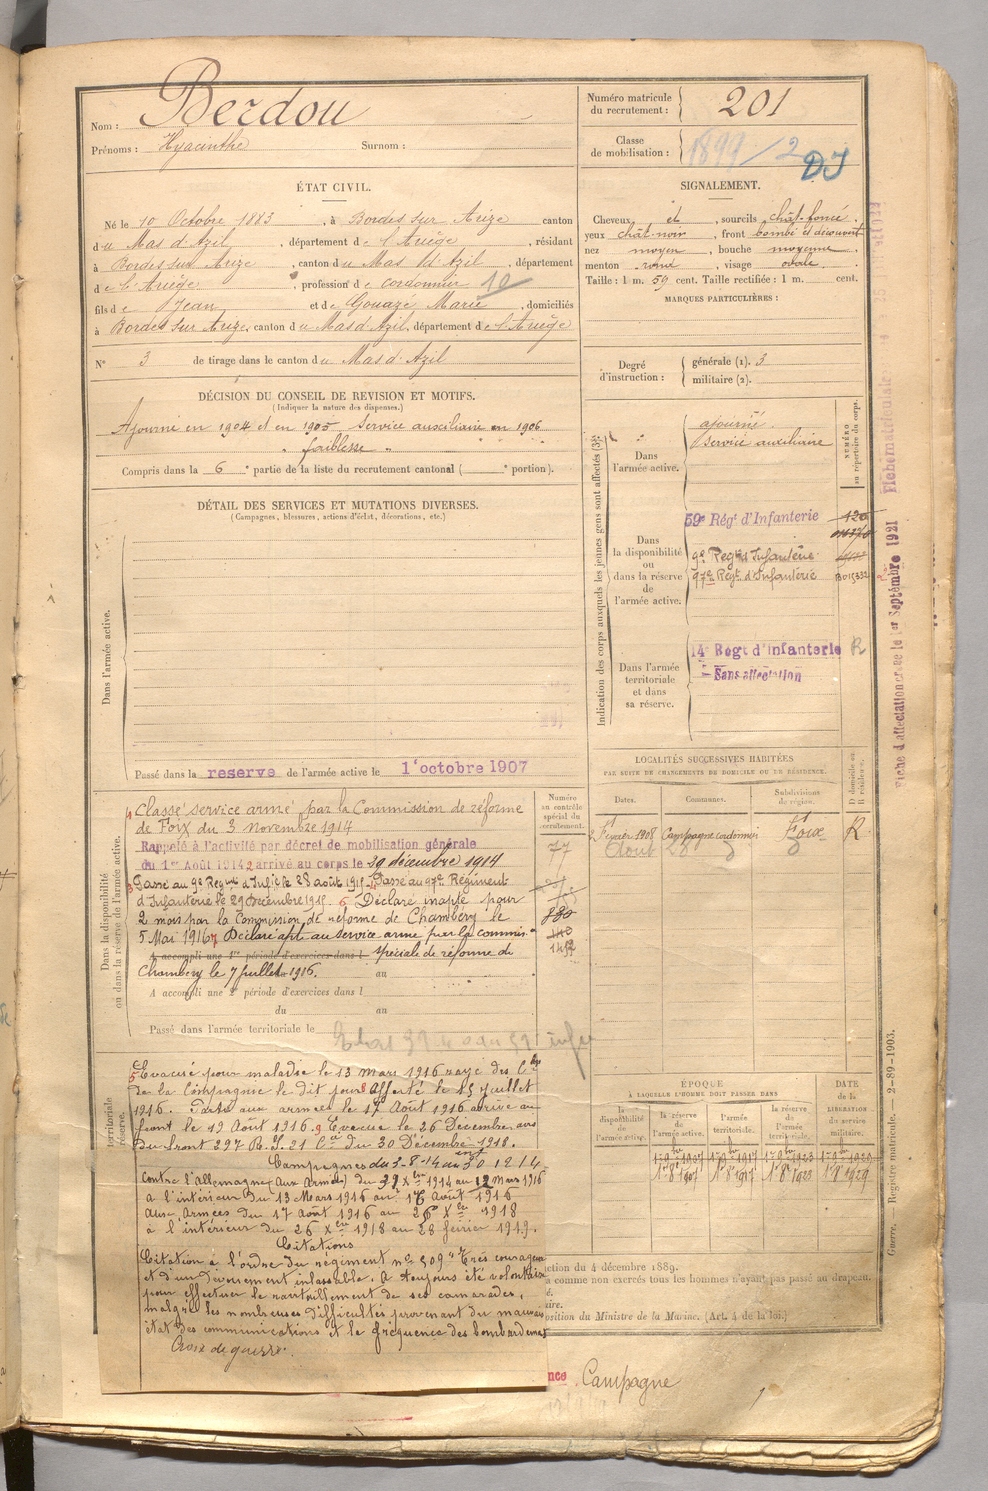 Nom : Berdou
Prénoms : Hyacinthe Surnom :
Numéro matricule du recrutement : 201
Classe de mobilisation : 1899/2 DJ
ÉTAT CIVIL.
Né le 10 Octobre 1883, à Bordes sur Arize canton
du Mas d'Azil, département de l'Ariège, résidant
à Bordes sur Arize, canton du Mas d'Azil, département
de l'Ariège, profession de cordonnier 10
fils de Jean et de Gouazé Marie, domiciliés
à Bordes sur Arize, canton du Mas d'Azil, département de l'Ariège
N° 3 de tirage dans le canton du Mas d'Azil
SIGNALEMENT.
Cheveux et, sourcils chât-foncé.
yeux chât-noir, front bombé et découvert
nez moyen, bouche moyenne
menton rond, visage ovale.
Taille : 1 m. 59 cent. Taille rectifiée : 1 m. cent.
MARQUES PARTICULIÈRES :
Degré d'instruction : générale (1). 3
militaire (2).
DÉCISION DU CONSEIL DE REVISION ET MOTIFS.
(Indiquer la nature des dispenses.)
Ajourné en 1904 et en 1905 Service auxiliaire en 1906
" faiblesse "
Compris dans la 6e partie de la liste du recrutement cantonal ( e portion).
DÉTAIL DES SERVICES ET MUTATIONS DIVERSES.
(Campagnes, blessures, actions d'éclat, décorations, etc.)
Dans l'armée active.
Passé dans la reserve de l'armée active le 1er octobre 1907
Indication des corps auxquels les jeunes gens sont affectés (3).
NUMÉRO au répertoire du corps.
Dans l'armée active.
ajourné
Service auxiliaire
Dans la disponibilité ou dans la réserve de l'armée active.
59e Régt d'Infanterie
9e Regt d'Infanterie
97e Regt d'Infanterie
Dans l'armée territoriale et dans sa réserve.
14e Regt d'Infanterie R
Sans affectation
Fiche d'affectation créée le 1er Septembre 1921
Dans la disponibilité ou dans la réserve de l'armée active.
Numéro au contrôle spécial du recrutement.
1 Classé service armé par la Commission de réforme
de Foix du 3 novembre 1914
Rappelé à l'activité par décret de mobilisation générale
du 1er Août 1914 2 arrivé au corps le 29 décembre 1914
3 Passé au 9e Regmt d'Infie le 28 août 1915 4 Passé au 97e Régiment
d'Infanterie le 29 Décembre 1915. 6 Déclaré inapte pour
2 mois par la Commission de réforme de Chambéry le
5 Mai 1916 7 Déclaré apte au service armé par la commis.
A accompli une 1re période d'exercices dans l spéciale de réforme de
Chambéry le 7 juillet 1916. au
A accompli une 2e période d'exercices dans l
du au
Passé dans l'armée territoriale le
77
880
LOCALITÉS SUCCESSIVES HABITÉES
PAR SUITE DE CHANGEMENTS DE DOMICILE OU DE RÉSIDENCE.
Dates. Communes. Subdivisions de région. D domicile ou R résidence.
2 Février 1908 Campagne cordonnier Foix R
territoriale
réserve.
5 Evacué pour maladie le 13 mars 1916 rayé des Cles
de la Compagnie le dit jour 8 Affecté le 15 juillet
1916. Parti aux armées le 17 Août 1916 arrivé au
front le 19 Août 1916. 9 Evacué le 26 Décembre
du front 297 R.I. 21 Cie du 30 Décembre 1918.
Campagnes
Contre l'Allemagne (Aux Armées) du 29 Xbre 1914 au 12 Mars 1916
à l'intérieur du 13 Mars 1916 au 16 Août 1916
Aux Armées du 17 Août 1916 au 26 Xbre 1918
à l'intérieur du 26 Xbre 1918 au 28 février 1919.
Citations
Citation à l'ordre du régiment n° 509 "Très courageux
et d'un dévouement inlassable. A toujours été volontaire
pour effectuer le ravitaillement de ses camarades,
malgré les nombreuses difficultés provenant du mauvais
état des communications et la fréquence des bombardements
Croix de guerre.
ÉPOQUE
À LAQUELLE L'HOMME DOIT PASSER DANS
DATE DE LA LIBÉRATION DU SERVICE MILITAIRE.
la disponibilité de l'armée active. la réserve de l'armée active. l'armée territoriale. la réserve de l'armée territoriale.
1er 8bre 1907 1er 8bre 1917 1er 8bre 1923 1er 8bre 1929
ction du 4 décembre 1889.
a comme non exercés tous les hommes n'ayant pas passé au drapeau.
é.
aire.
osition du Ministre de la Marine. (Art. 4 de la loi.)
nce Campagne
Guerre. — Registre matricule. — 2-89-1903.